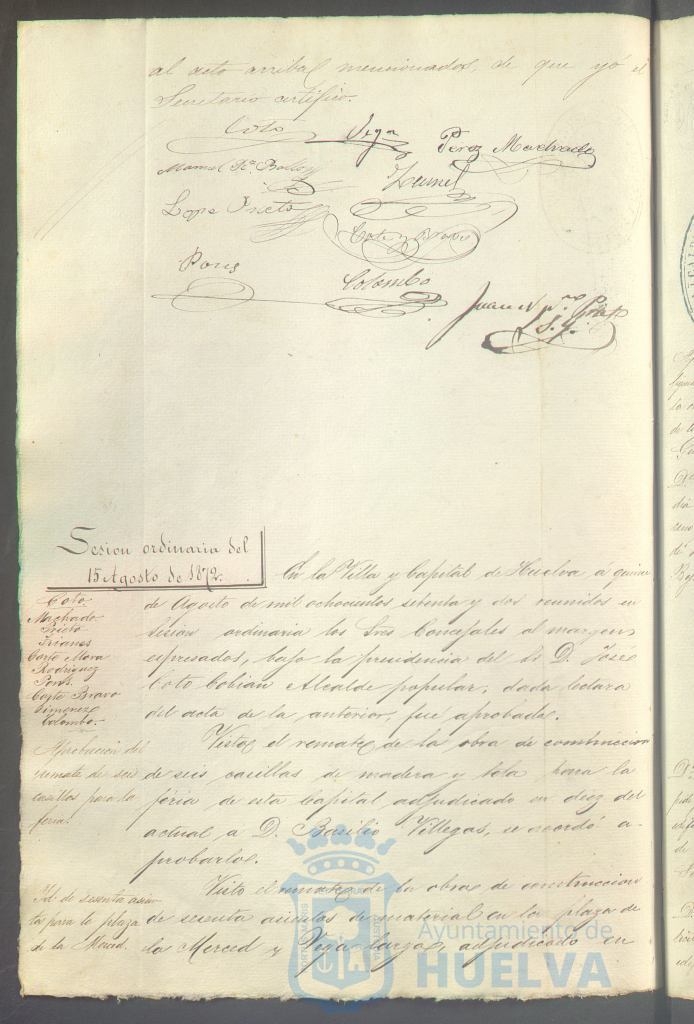 al acto arriba mencionados, de que yó el
Secretario certifico.
Coto Vega Perez Machado
Manuel Fª.
Lope Prieto
Coto y Bravo
Pons
Colombo
Juan N
S. I.
Sesion ordinaria del
15 Agosto de 1872.
Coto
Machado
Prieto
Trianes
Corte Mora
Rodriguez
Pons.
Corte Bravo
Gimenez
Colombo.
En la Villa y Capital de Huelva á quince
de Agosto de mil ochocientos setenta y dos reunidos en
sesion ordinaria los Sres Concejales al margen
espresados, bajo la presidencia del Sr D. José
Coto Cobian Alcalde popular, dada lectura
del acta de la anterior, fué aprobada.
Aprobacion del
remate de seis
casillas para la
feria.
Visto el remate de la obra de construccion
de seis casillas de madera y tela para la
feria de esta Capital adjudicado en diez del
actual a D. Basilio Villegas, se acordó a-
probarlo.
Id. de sesenta asien
tos para la plaza
de la Merced.
Visto el remate de la obra de construccion
de sesenta asientos de material en la plaza de
la Merced y Vega larga, adjudicado en
Ayuntamiento de
HUELVA